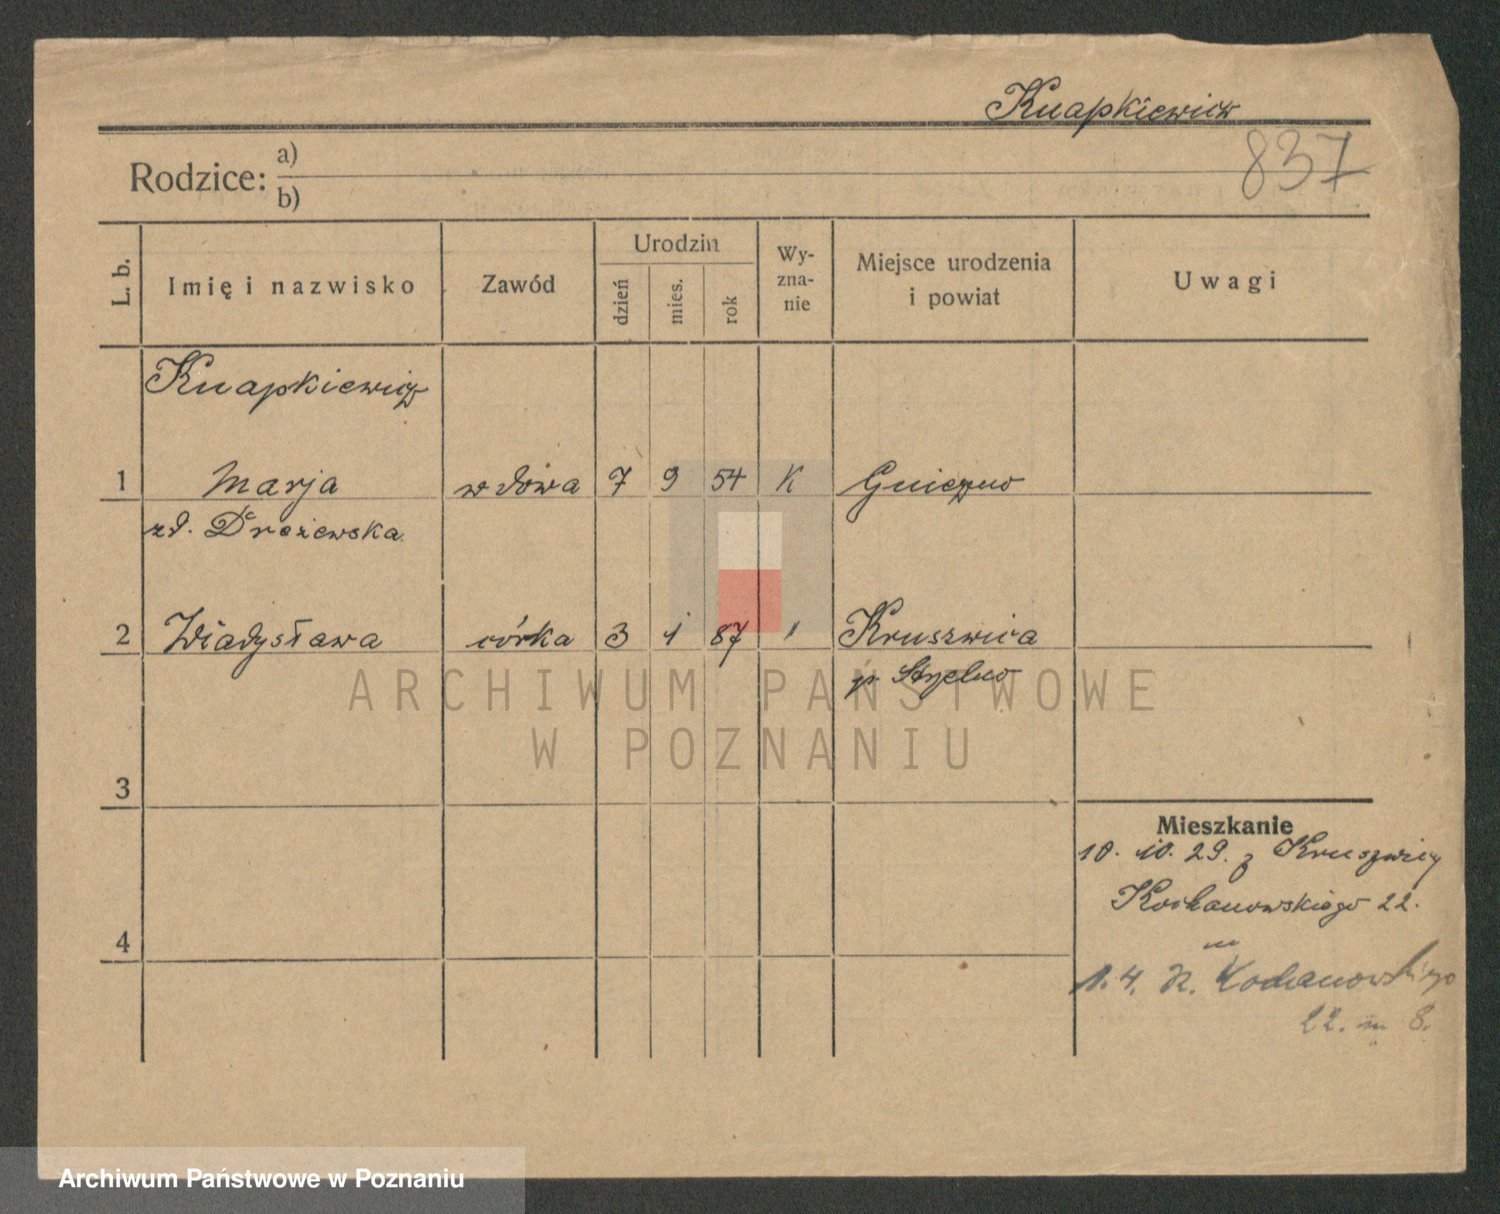 Knapkiewicz
837
Rodzice: a)
b)
L. b.
Imię i nazwisko
Zawód
Urodzin
dzień
mies.
rok
Wy-
zna-
nie
Miejsce urodzenia
i powiat
Uwagi
Knapkiewicz
1 Marja wdowa 7 9 54 K Gniezno
zd. Drożewska
2 Władysława córka 3 1 87 " Kruszwica
p. Strzelno
3
4
Mieszkanie
10. 10. 29. z Kruszwicy
Kochanowskiego 22.
1. 4. Kochanowskiego
22. m 8.
ARCHIWUM PAŃSTWOWE
W POZNANIU
Archiwum Państwowe w Poznaniu